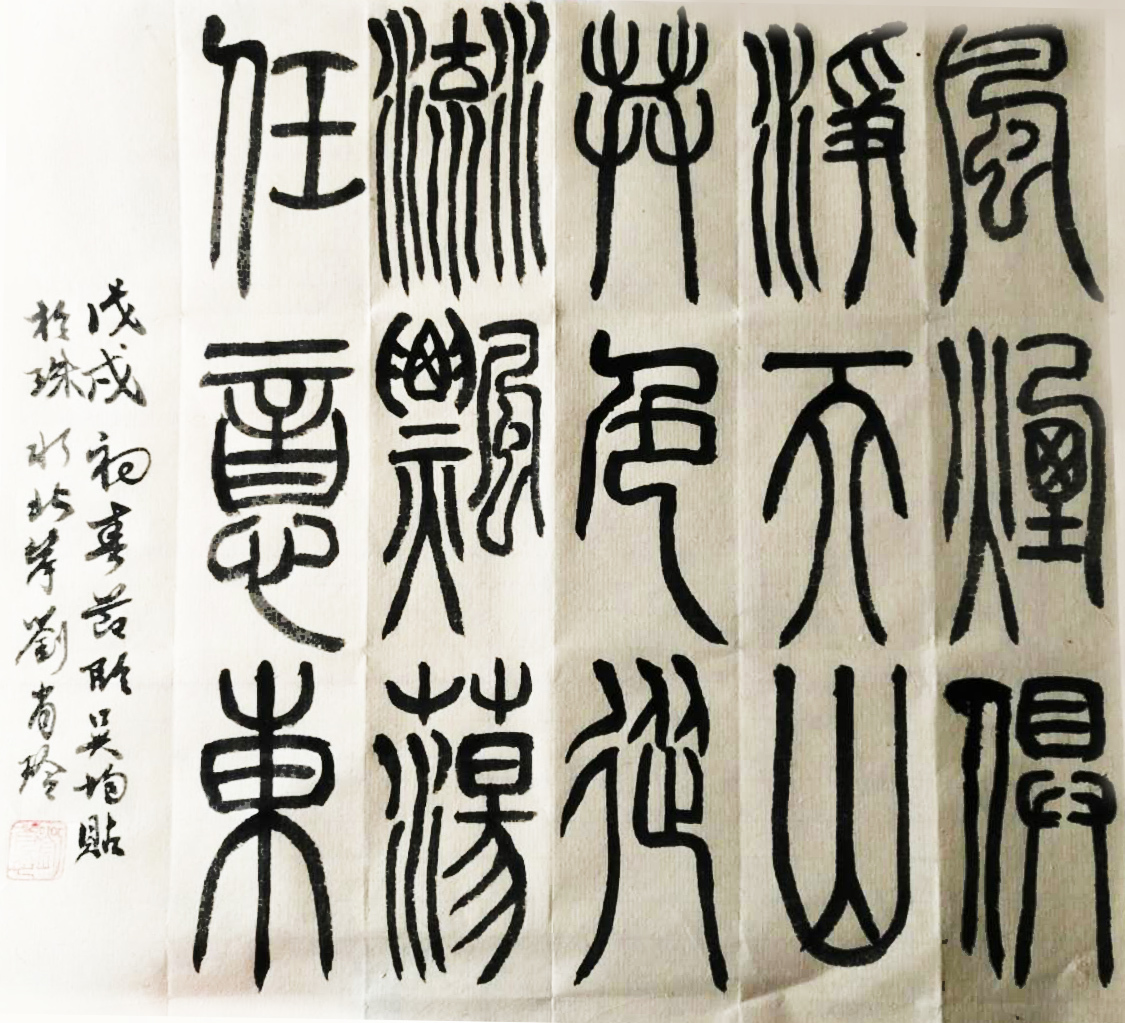 風煙俱
淨天山
共色從
流飄蕩
任意東
戊戌初春節臨吳均貼
於珠水北岸劉肖玲